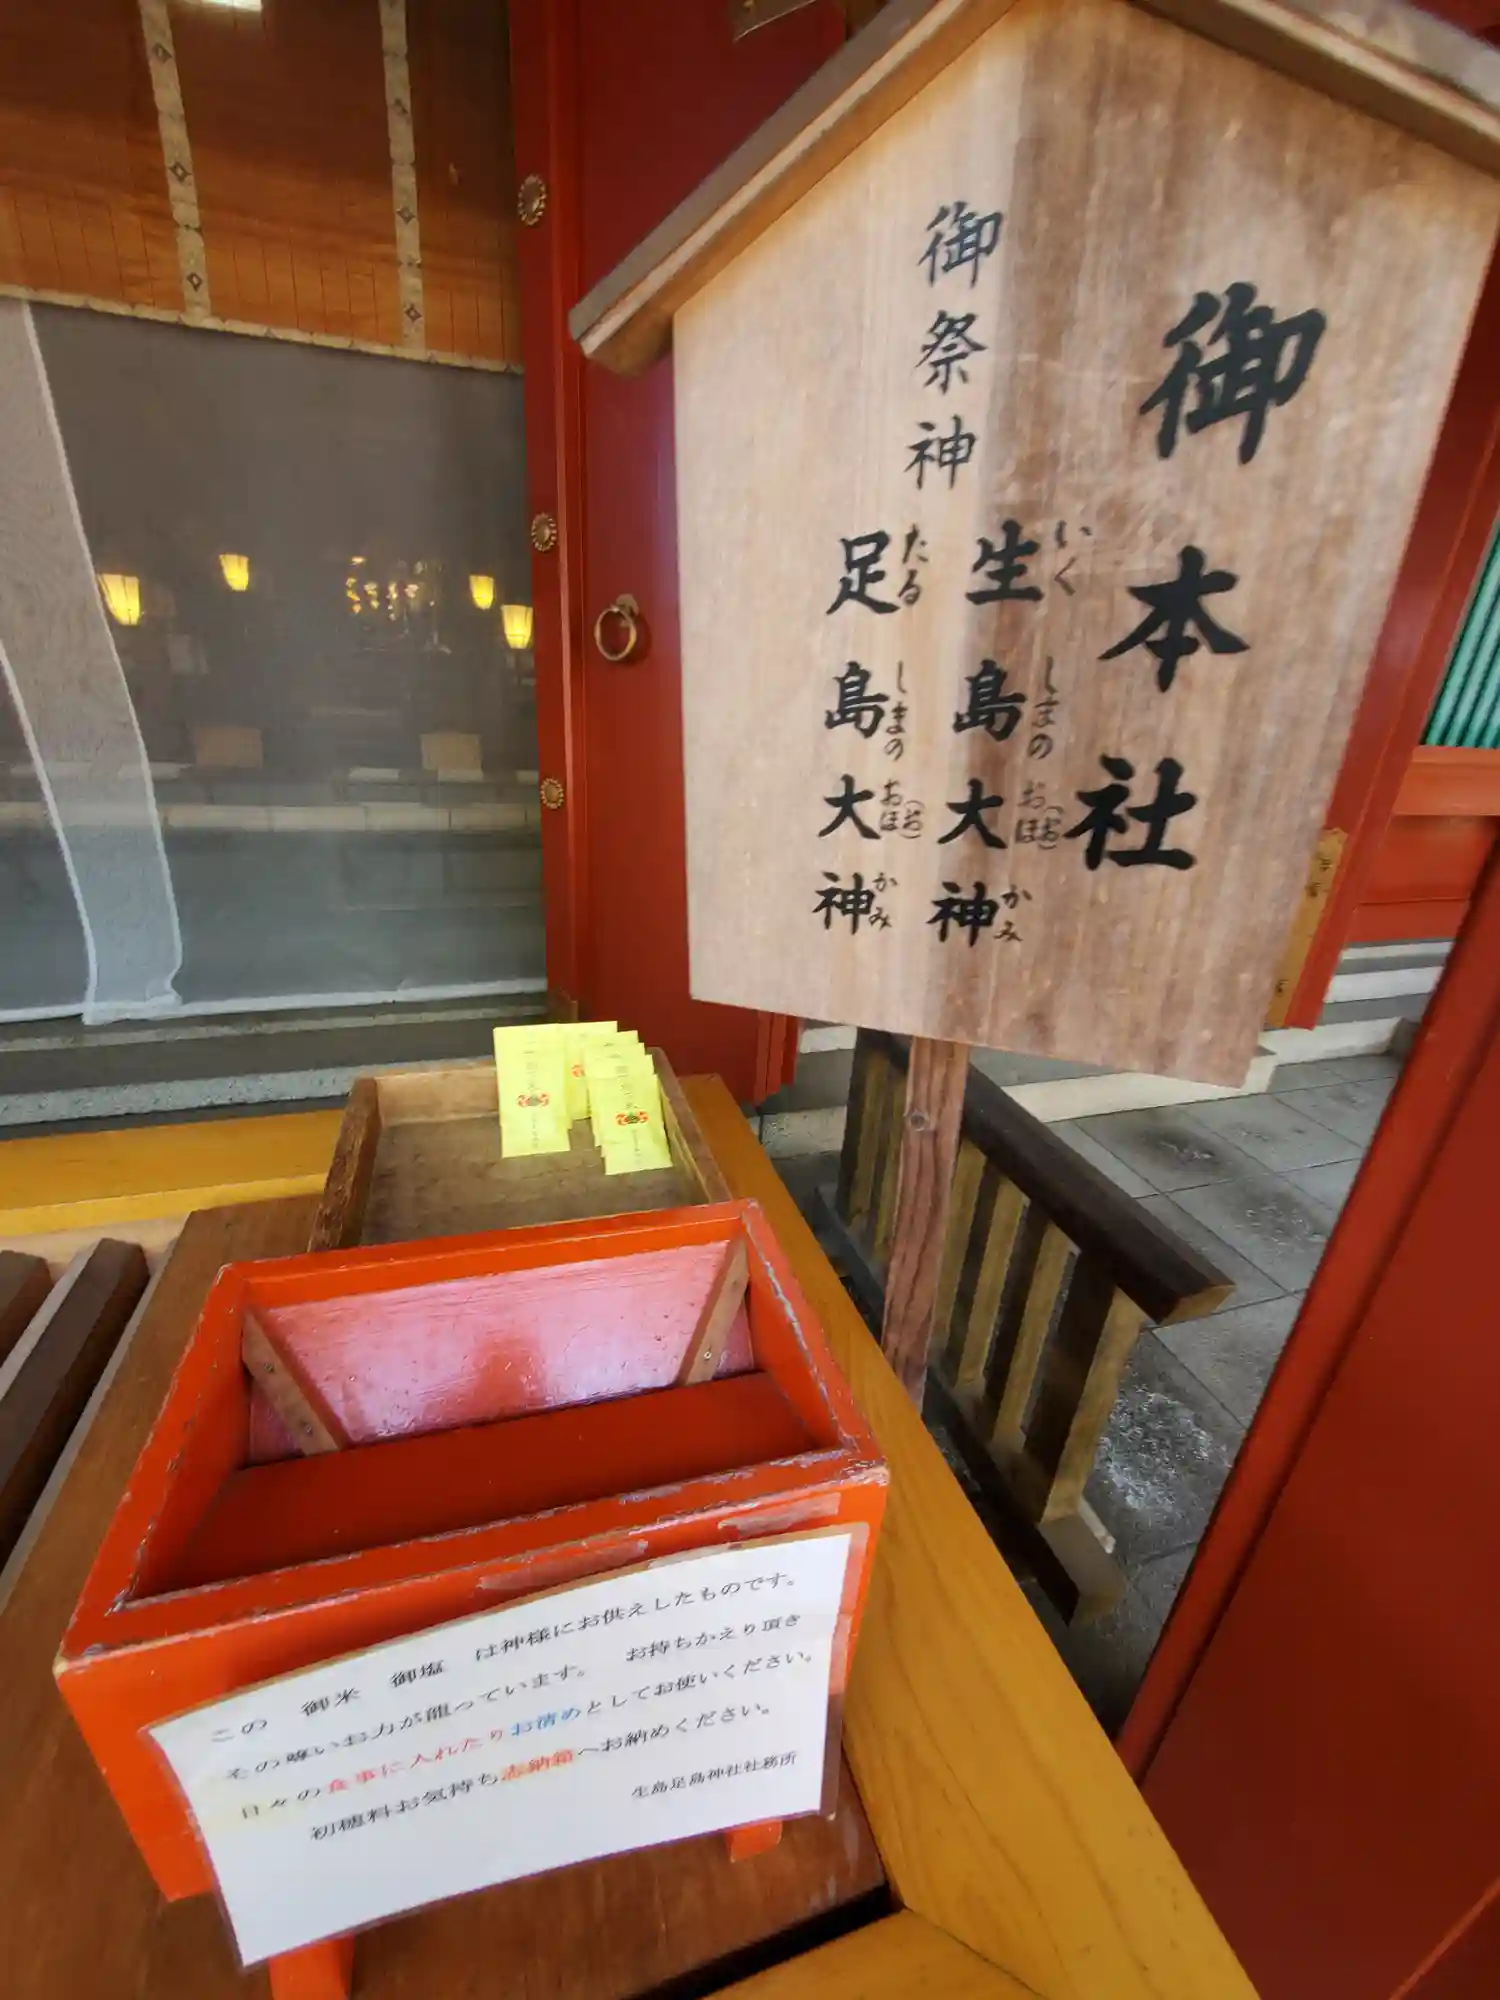 御本社
御祭神
生島大神
いくしまのおほ(お)かみ
足島大神
たるしまのおほ(お)かみ
この　御米　御塩　は神様にお供えしたものです。
その尊いお力が籠っています。　お持ちかえり頂き
日々の食事に入れたりお清めとしてお使いください。
初穂料お気持ち志納箱へお納めください。
生島足島神社社務所